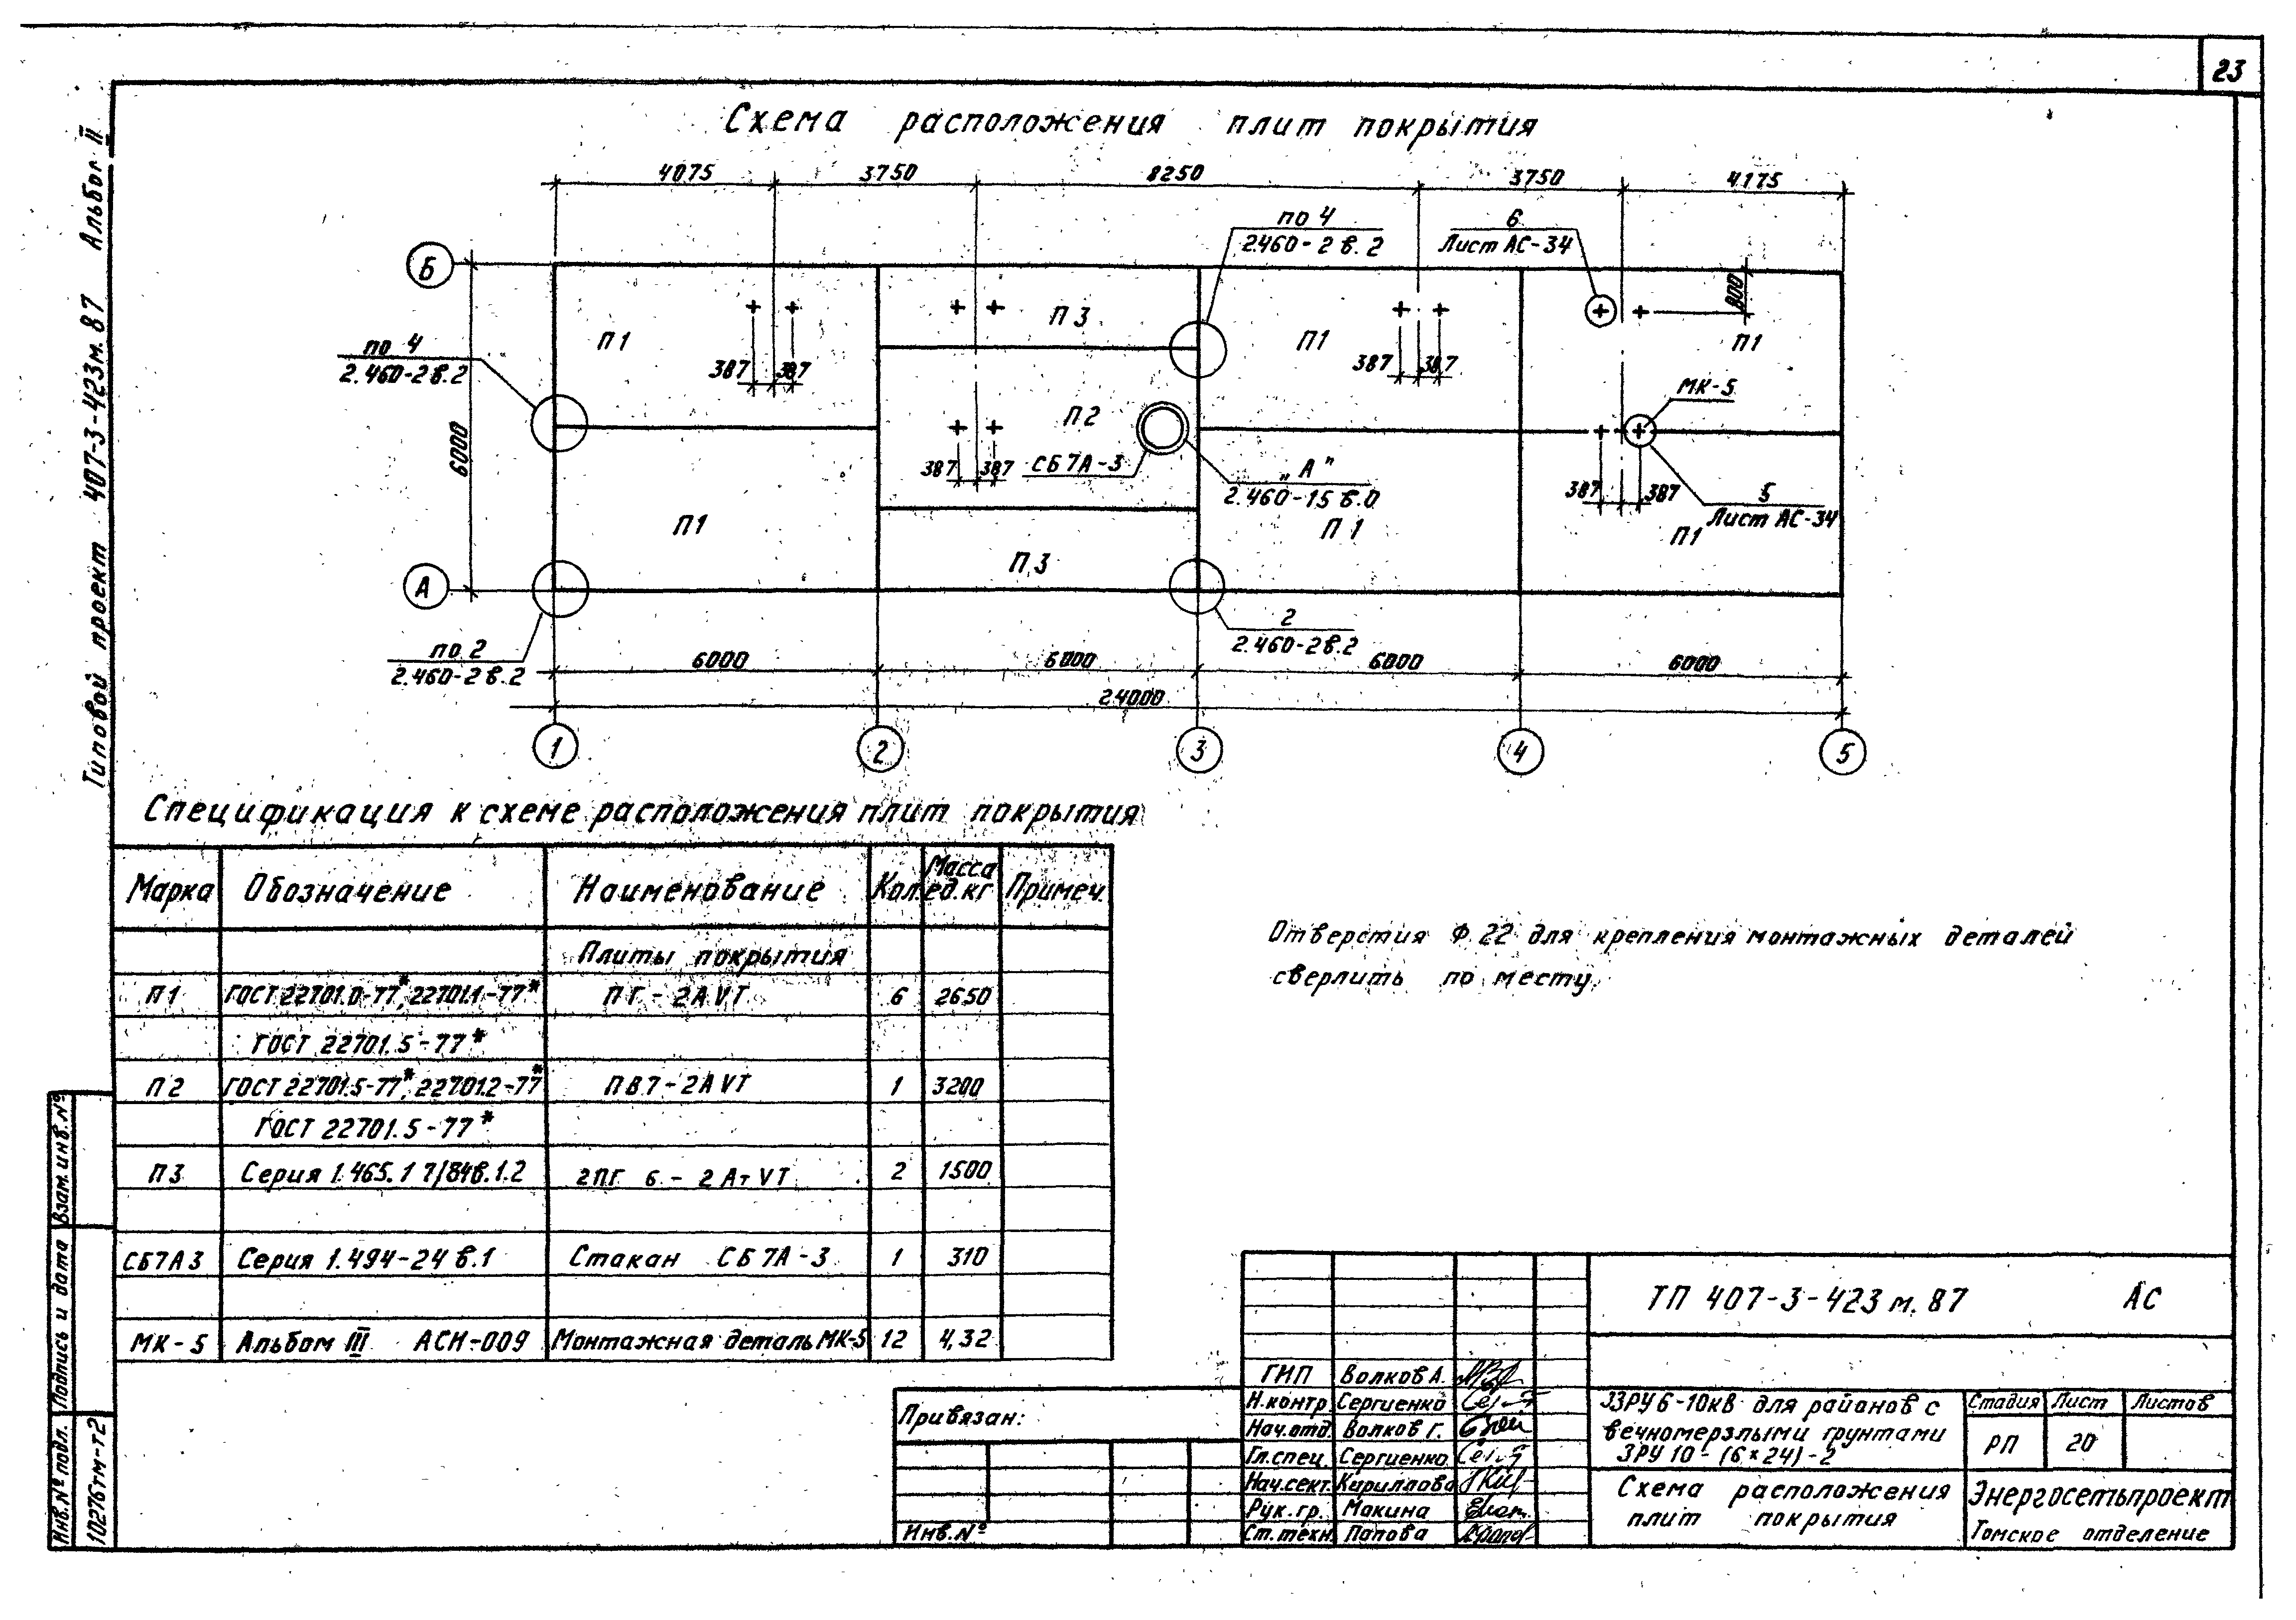 23
Типовой проект 407-3-423м.87 Альбом II
Схема расположения плит покрытия
4075 3750 8250 3750 4175
по 4
2.460-2 в.2
6
Лист АС-34
Б
800
П1
П3
П1
П1
по 4
2.460-2 в.2
387 387
387 387
МК-5
П2
6000
387 387
СБ7А-3
„А"
2.460-15 в.0
387 387
5
Лист АС-34
П1
П1
П1
П3
А
2
2.460-2в.2
по 2
2.460-2 в.2
6000 6000 6000 6000
24000
1 2 3 4 5
Спецификация к схеме расположения плит покрытия
Марка Обозначение Наименование Кол. Масса ед.кг Примеч.
Плиты покрытия
П1 ГОСТ 22701.0-77*, 22701.1-77* ПГ-2АVТ 6 2650
ГОСТ 22701.5-77*
П2 ГОСТ 22701.5-77*, 22701.2-77* ПВ7-2АVТ 1 3200
ГОСТ 22701.5-77*
П3 Серия 1.465.1 7/84в.1.2 2ПГ 6-2АтVТ 2 1500
СБ7А3 Серия 1.494-24 в.1 Стакан СБ7А-3 1 310
МК-5 Альбом III АСИ-009 Монтажная деталь МК-5 12 4,32
Отверстия Ф 22 для крепления монтажных деталей
сверлить по месту.
Взам.инв.№
Подпись и дата
Инв.№ подл.
10276тм-т2
Привязан:
Инв.№
ТП 407-3-423м.87 АС
ГИП Волков А.
Н.контр Сергиенко
Нач.отд. Волков Г.
Гл.спец. Сергиенко
Нач.сект. Кириллова
Рук.гр. Макина
Ст.техн. Попова
ЗЗРУ 6-10кВ для районов с
вечномерзлыми грунтами
ЗРУ 10-(6×24)-2
Стадия Лист Листов
РП 20
Схема расположения
плит покрытия
Энергосетьпроект
Томское отделение